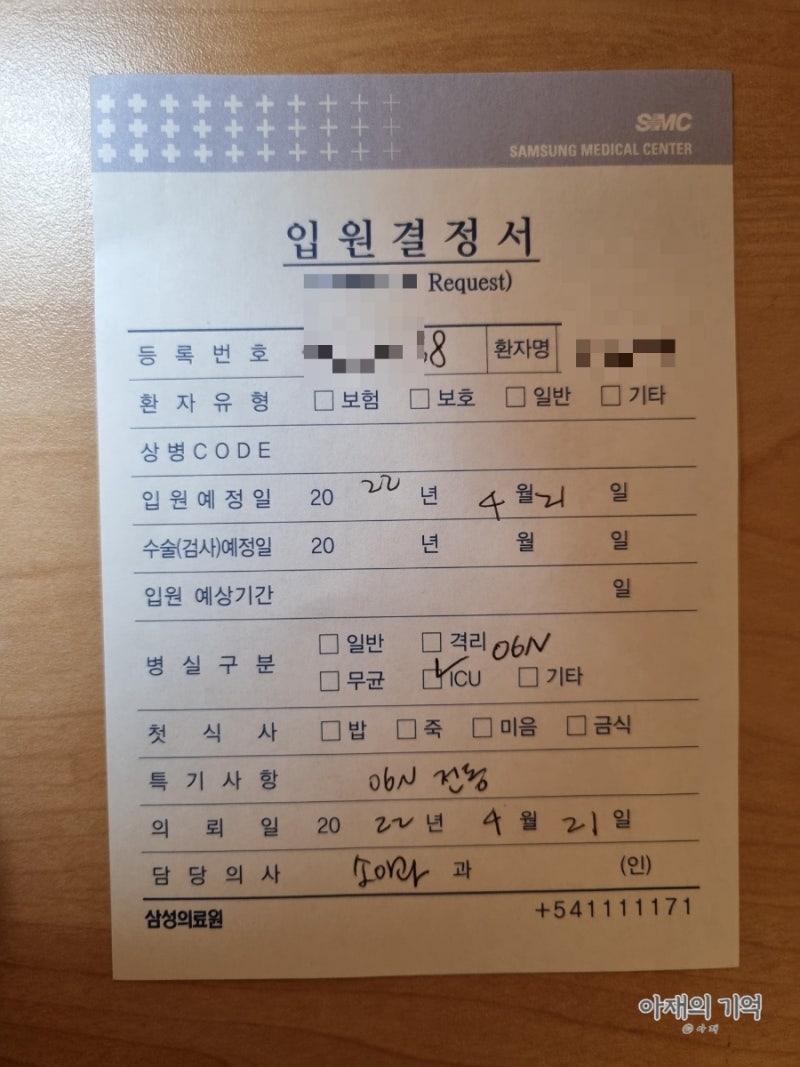 SMC
SAMSUNG MEDICAL CENTER
입원결정서
Request)
등록번호 8 환자명
환자유형 □ 보험 □ 보호 □ 일반 □ 기타
상병CODE
입원예정일 2022년 4월 21일
수술(검사)예정일 20 년 월 일
입원 예상기간 일
병실구분 □ 일반 □ 격리 06N
□ 무균 ☑ ICU □ 기타
첫식사 □ 밥 □ 죽 □ 미음 □ 금식
특기사항 06N 전동
의뢰일 2022년 4월 21일
담당의사 소아과 과 (인)
삼성의료원 +541111171
아재의 기억
@아재